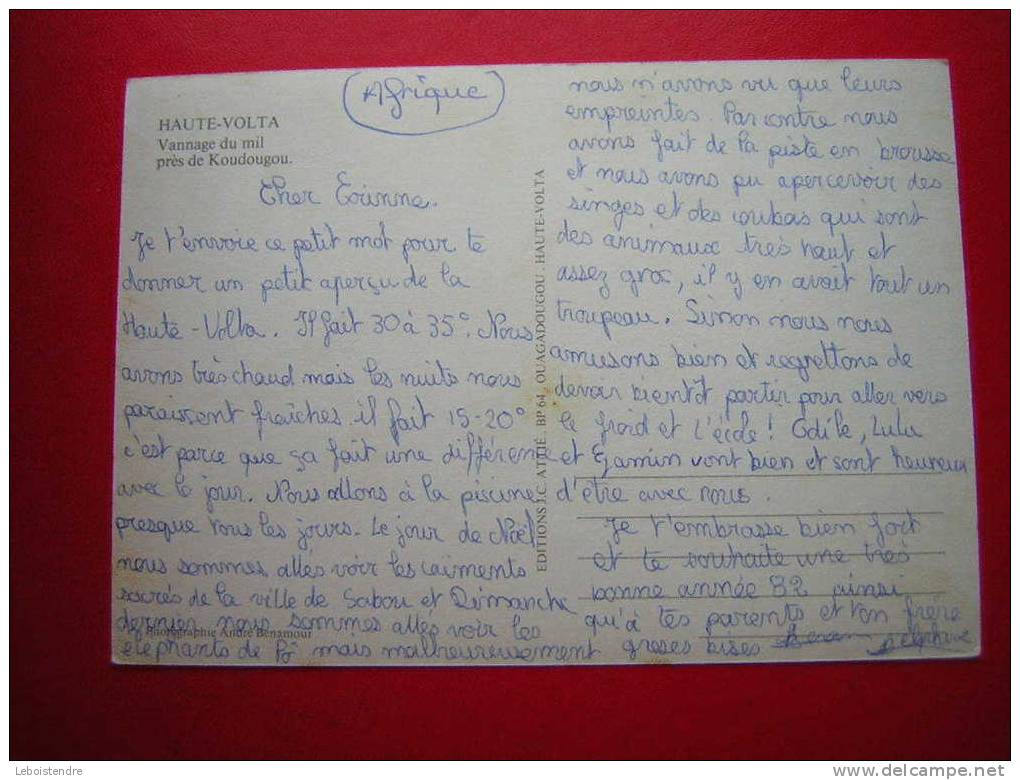 (Afrique)
HAUTE-VOLTA
Vannage du mil
près de Koudougou.
Cher Corinne.
Je t'envoie ce petit mot pour te
donner un petit aperçu de la
Haute-Volta. Il fait 30 à 35°. Nous
avons très chaud mais les nuits nous
paraissent fraîches il fait 15-20°
c'est parce que ça fait une différence
avec le jour. Nous allons à la piscine
presque tous les jours. Le jour de Noël
nous sommes allés voir les caiments
sacrés de la ville de Sabou et Dimanche
dernier nous sommes allés voir les
éléphants de Pô mais malheureusement
Photographie André Bénamour
EDITIONS J.C. ATTIÉ. BP 64. OUAGADOUGOU. HAUTE-VOLTA
nous n'avons vu que leurs
empreintes. Par contre nous
avons fait de la piste en brousse
et nous avons pu apercevoir des
singes et des coubas qui sont
des animaux très haut et
assez gros, il y en avait tout un
troupeau. Sinon nous nous
amusons bien et regrettons de
devoir bientôt partir pour aller vers
le froid et l'école! Odile, Lulu
et Gamin vont bien et sont heureux
d'être avec nous.
Je t'embrasse bien fort
et te souhaite une très
bonne année 82 ainsi
qu'à tes parents et ton frère
groses bises Delphine
Leboistendre
delcampe.net